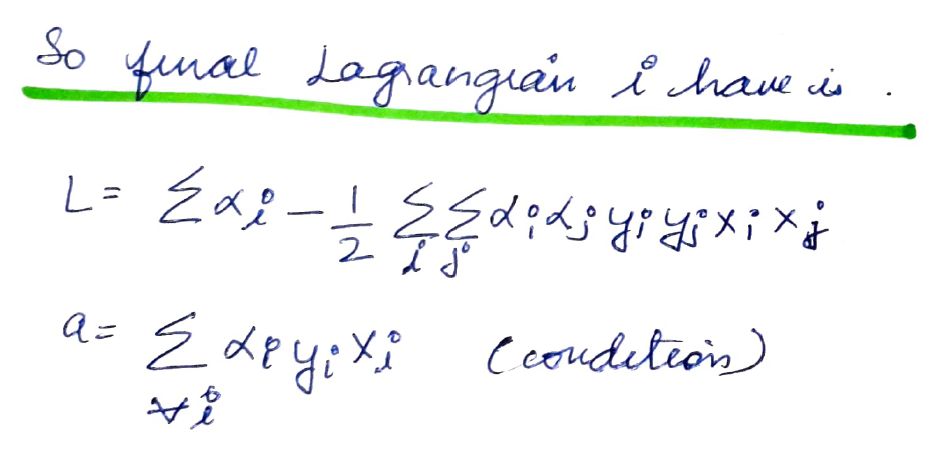 So final Lagrangian i have is .
L = Σαi - 1/2 Σi Σj αi αj yi yj xi xj
a = Σ∀i αi yi xi (condition)